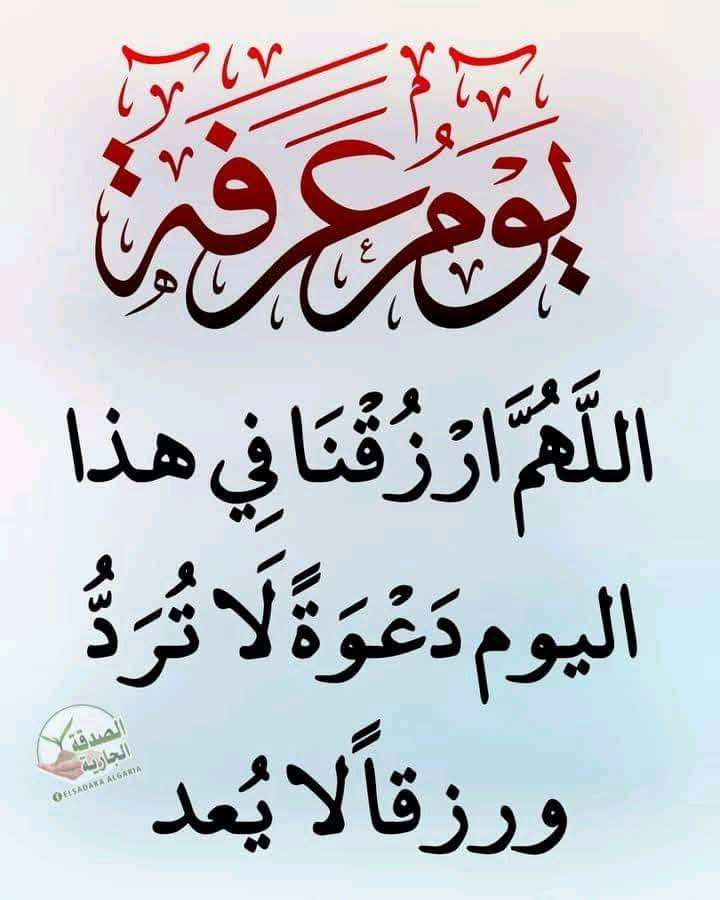 يَوْمُ عَرَفَة
اللَّهُمَّ ارْزُقْنَا فِي هذا
اليوم دَعْوَةً لَا تُرَدُّ
ورزقاً لا يُعد
الصدقة
الجارية
ELSADAKA ALGARIA